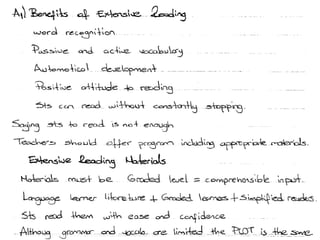 A) Benefits of Extensive Reading
word recognition
Passive and active vocabulary
Automotical development
Positive attitude to reading
Sts can read without constantly stopping.
Saying sts to read is not enough
Teachers should offer program including appropriate materials.
Extensive Reading Materials
Materials must be Graded level = comprehensible input.
Language learner literature + Graded learners + Simplified readers.
Sts read them with ease and confidence
Althoug grammar and vocab. are limited the PLOT is the same